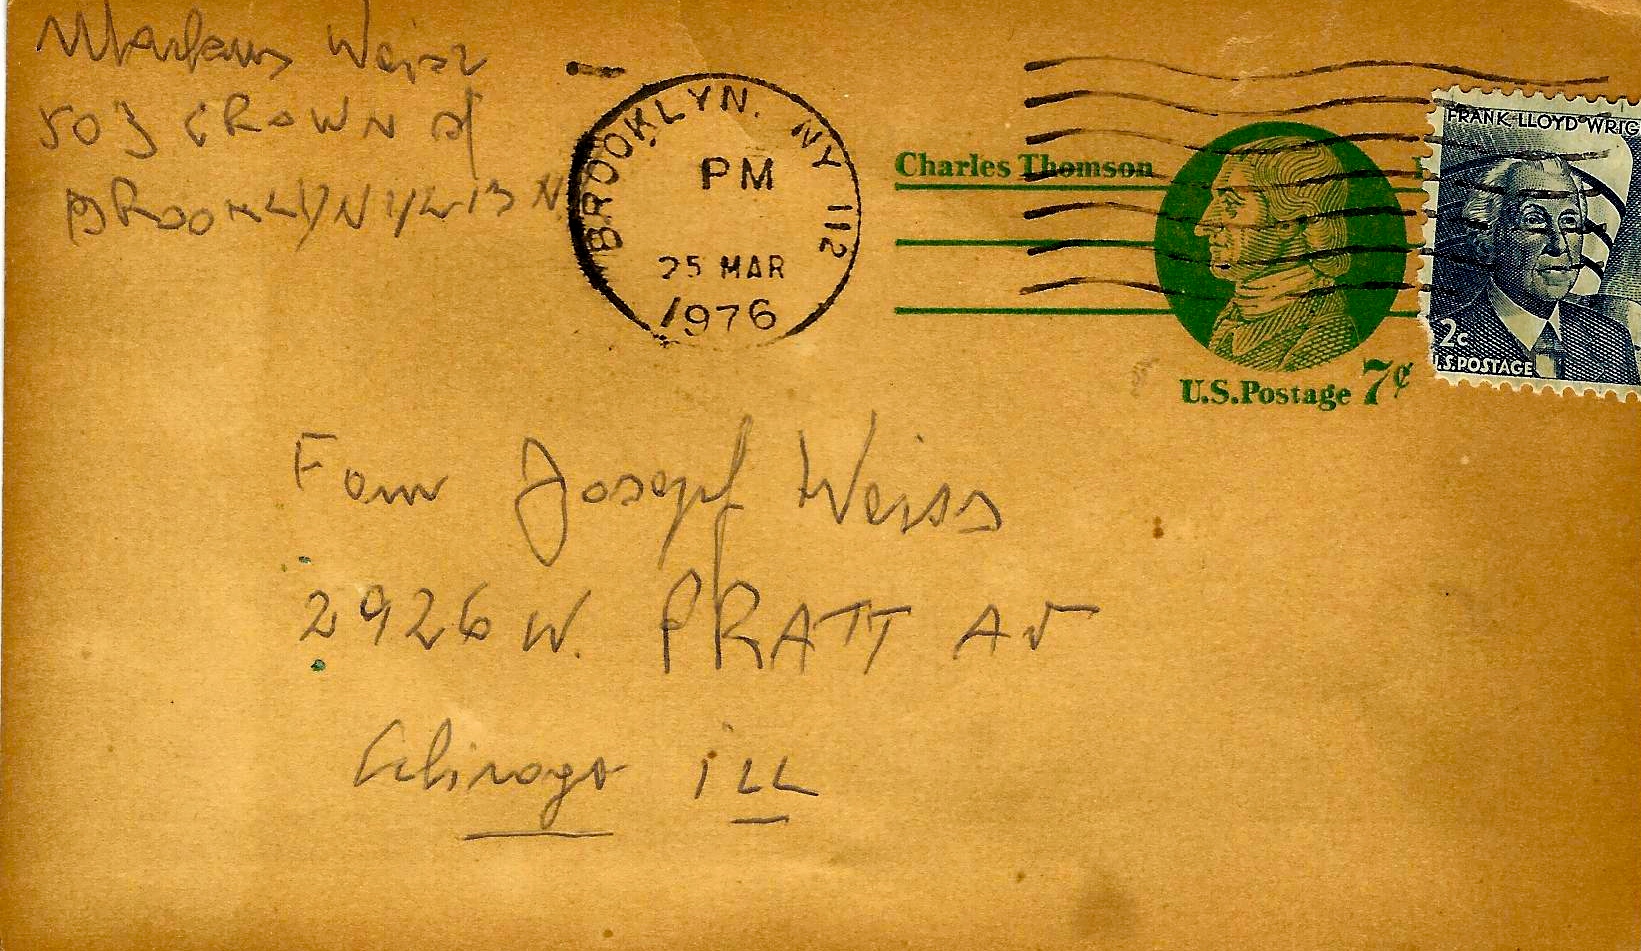 Markus Weiss
503 CROWN St
BROOKLYN
BROOKLYN, NY 112
PM
25 MAR
1976
Charles Thomson
U.S.Postage 7¢
FRANK LLOYD WRIG
2c
U.S.POSTAGE
Fam Joseph Weiss
2926 W. PRATT AV
Chicago ILL